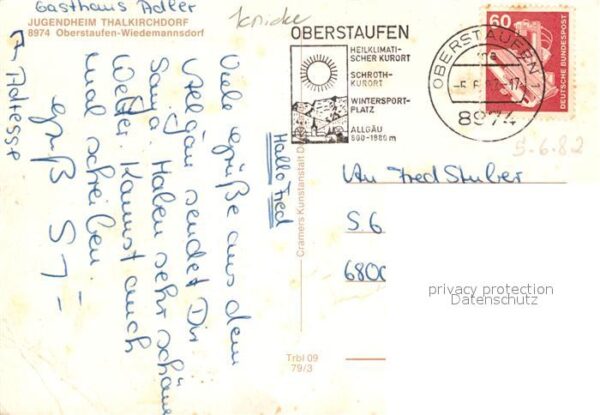 Gasthaus Adler
JUGENDHEIM THALKIRCHDORF
8974 Oberstaufen-Wiedemannsdorf
↑ Adresse
Hallo Fred
Viele Grüße aus dem
Allgäu sendet Dir
Sanja. Haben sehr schönes
Wetter. Kannst auch
mal schreiben
Gruß S
Cramers Kunstanstalt D
Trbl 09
79/3
OBERSTAUFEN
HEILKLIMATI-
SCHER KURORT
SCHROTH-
KURORT
WINTERSPORT-
PLATZ
ALLGÄU
800-1880 m
OBERSTAUFEN 1
8974
60
DEUTSCHE BUNDESPOST
5.6.82
An Fred Stuber
S 6
6800
privacy protection
Datenschutz